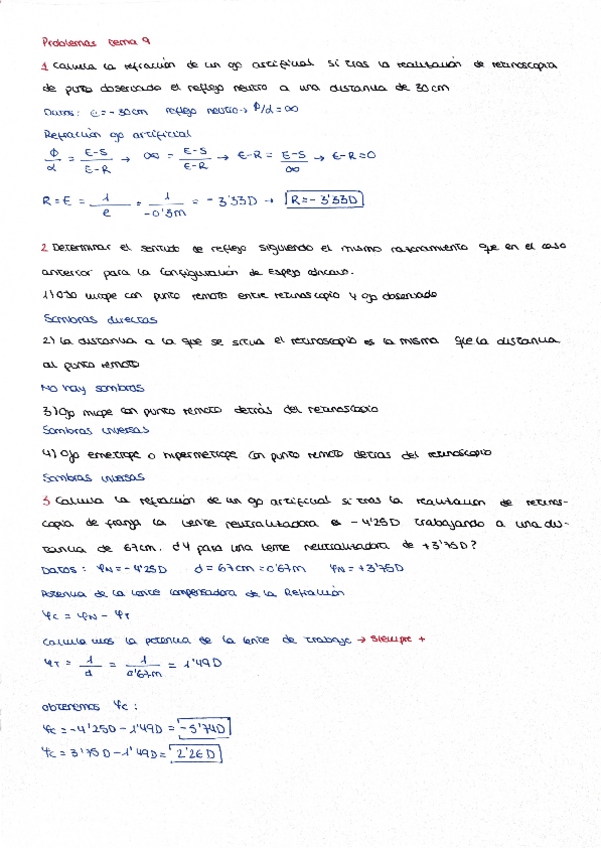 Problemas tema 9
1 Calcula la refracción de un ojo artificial si tras la realización de retinoscopia
de punto observado el reflejo neutro a una distancia de 30cm
Datos: e=-30cm reflejo neutro → ϕ/α=∞
Refracción ojo artificial
ϕ/α = E-S/E-R → ∞ = E-S/E-R → E-R = E-S/∞ → E-R=0
R = E = 1/e = 1/-0'3m = -3'33D → R=-3'33D
2 Determinar el sentido de reflejo siguiendo el mismo razonamiento que en el caso
anterior para la configuración de Espejo cóncavo.
1) Ojo miope con punto remoto entre retinoscopio y ojo observado
Sombras directas
2) La distancia a la que se situa el retinoscopio es la misma que la distancia
al punto remoto
No hay sombras
3) Ojo miope con punto remoto detrás del retinoscopio
Sombras inversas
4) Ojo emetrope o hipermetrope con punto remoto detras del retinoscopio
Sombras inversas
3 Calcula la refracción de un ojo artificial si tras la realización de retinos-
copia de franja la lente neutralizadora es -4'25D trabajando a una dis-
tancia de 67cm. d y para una lente neutralizadora de +3'75D?
Datos: φN=-4'25D d=67cm=0'67m φN=+3'75D
Potencia de la lente compensadora de la Refracción
φc = φN - φT
Calculamos la potencia de la lente de trabajo → siempre +
φT = 1/d = 1/0'67m = 1'49D
obtenemos φc:
φc=-4'25D-1'49D=-5'74D
φc=3'75D-1'49D=2'26D